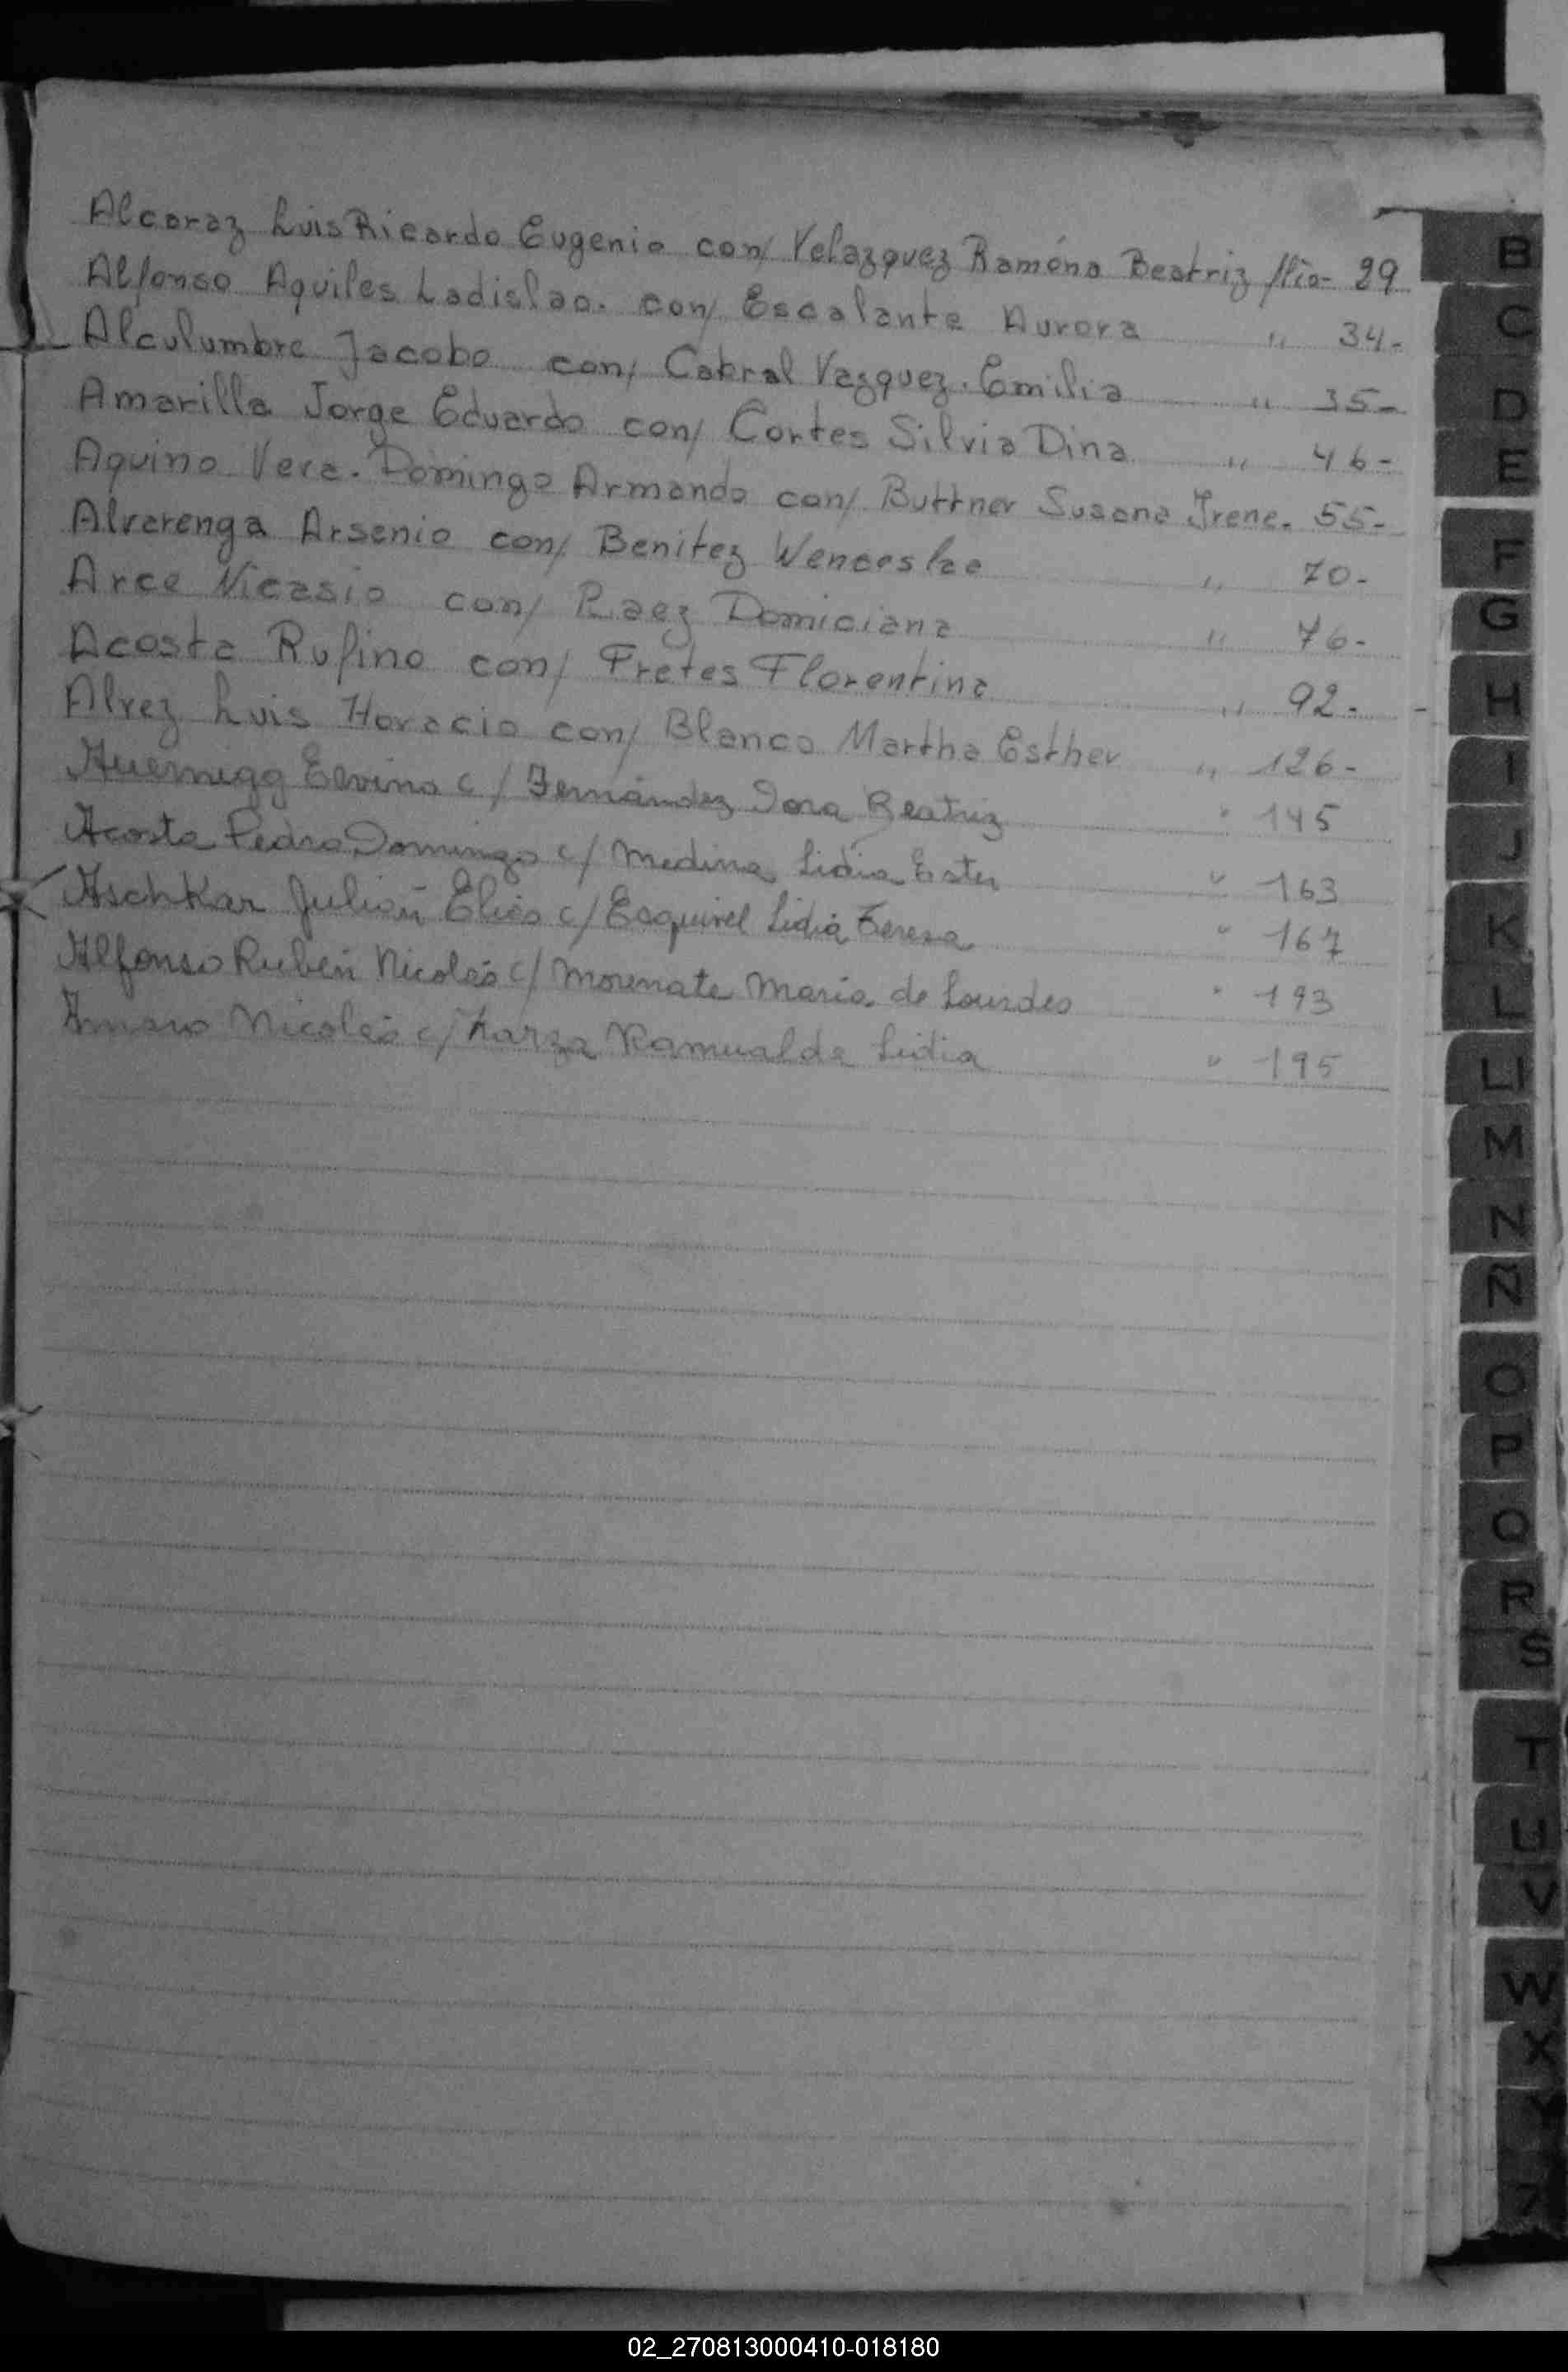 Alcaraz Luis Ricardo Eugenio con/ Velazquez Ramóna Beatriz flio- 29
Alfonso Aquiles Ladislao. con/ Escalante Aurora " 34-
Alculumbre Jacobo con/ Cabral Vazquez. Emilia " 35-
Amarilla Jorge Eduardo con/ Cortes Silvia Dina " 46-
Aquino Vera. Domingo Armando con/ Buttner Susana Irene. 55-
Alvarenga Arsenio con/ Benitez Wenceslaa " 70-
Arce Nicasio con/ Raez Domiciana " 76-
Acosta Rufino con/ Fretes Florentina " 92-
Alvez Luis Horacio con/ Blanco Martha Esther " 126-
Elvino c/ Fernández Dora Beatriz " 145
Acosta Pedro Domingo c/ Medina Lidia Ester " 163
Aschkar Julián Elías c/ Esquivel Lidia Teresa " 167
Alfonso Rubén Nicolás c/ Morenate María de Lourdes " 193
Amaro Nicolás c/ Karza Ramualda Lidia " 195
B
C
D
E
F
G
H
I
J
K
L
Ll
M
N
Ñ
O
P
Q
R
S
T
U
V
W
X
Y
Z
02_270813000410-018180